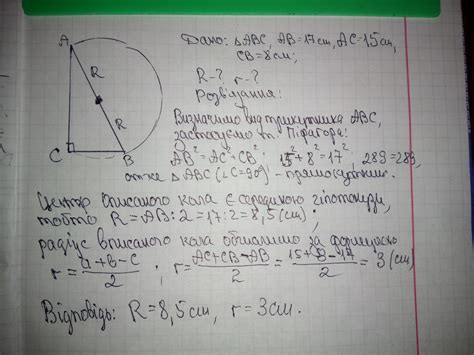 A
R
R
C
B
Дано: △ABC, AB=17см, AC=15см,
CB=8см;
R-? r-?
Розв'язання:
Визначимо вид трикутника ABC,
застосуємо т. Піфагора:
AB²=AC²+CB²; 15²+8²=17², 289=289,
отже △ABC(∠C=90°) - прямокутний.
Центр описаного кола є серединою гіпотенузи,
тобто R=AB:2=17:2=8,5(см);
радіус вписаного кола обчислимо за формулою
r=(a+b-c)/2; r=(AC+CB-AB)/2=(15+8-17)/2=3(см)
Відповідь: R=8,5см, r=3см.